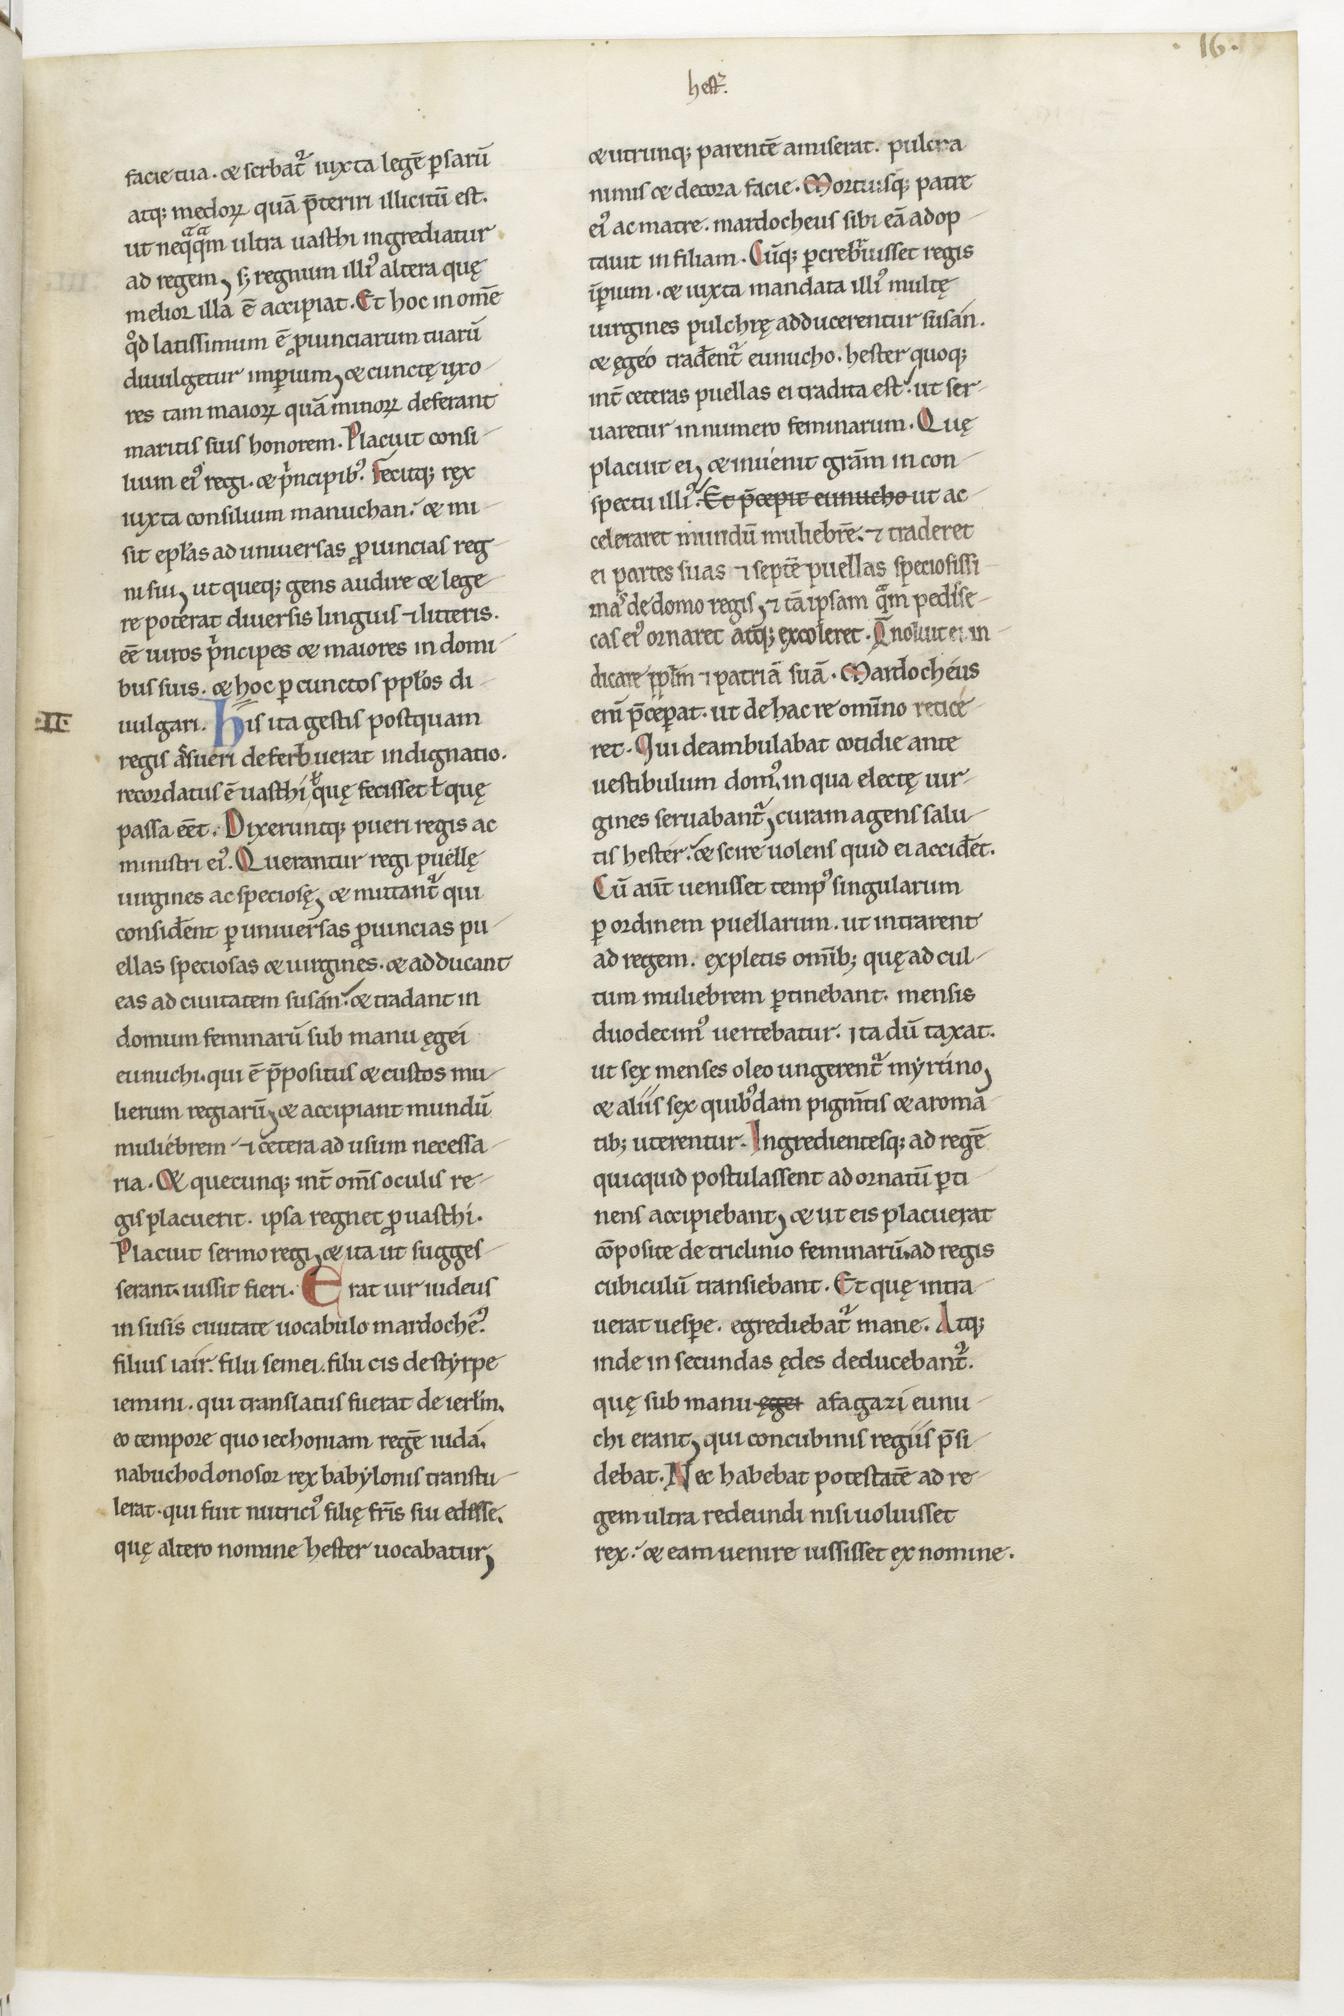 ·16·
hest᷑.
facie tua. & scribat᷑ iuxta legē ꝑsarū
atq; medoꝝ quā p̄teriri illicitū est.
ut neqͣqͣm ultra uasthi ingrediatur
ad regem, s; regnum illi᷒ altera quę
melior illa ē accipiat. Et hoc in om̄e
qͦd latissimum ē ꝓuinciarum tuarū
diuulgetur imꝑium, & cunctę uxo-
res tam maioꝝ quā minoꝝ deferant
maritis suis honorem. Placuit consi-
lium ei᷒ regi. & pͥncipib᷒. Fecitq; rex
iuxta consilium manuchan. & mi-
sit ep̄las ad uniuersas ꝓuincias reg-
ni sui, ut queq; gens audire & lege-
re poterat diuersis linguis ⁊ litteris.
eē uiros pͥncipes & maiores in domi-
bus suis. & hoc ꝑ cunctos pp̄los di-
uulgari. His ita gestis postquam
·II·
regis asueri deferbuerat indignatio.
recordatus ē uasthi ł quę fecisset ł quę
passa eēt. Dixeruntq; pueri regis ac
ministri ei᷒. Querantur regi puellę
uirgines ac speciosę, & mittant᷑ qui
consideēnt ꝑ uniuersas ꝓuincias pu-
ellas speciosas & uirgines. & adducant
eas ad ciuitatem susan. & tradant in
domum feminarū sub manu ęgei
eunuchi. qui ē p̄positus & custos mu-
lierum regiarū, & accipiant mundū
muliebrem ⁊ cetera ad usum necessa-
ria. & quecunq; int̄ om̄s oculis re-
gis placuerit. ipsa regnet ꝓ uasthi.
Placuit sermo regi, & ita ut sugges-
serant, iussit fieri. Erat uir iudeus
in susis ciuitate uocabulo mardoche᷒.
filius iair. filii semei. filii cis de styrpe
iemini. qui translatus fuerat de ierl̄m,
eo tempore quo iechoniam regē iuda,
nabuchodonosor rex babylonis transtu-
lerat. qui fuit nutrici᷒ filię fr̄is sui edisse,
quę altero nomine hester uocabatur,
& utrunq; parentē amiserat. pulcra
nimis & decora facie. Mortuisq; patre
ei᷒ ac matre. mardocheus sibi eā adop-
tauit in filiam. Cūq; ꝑcrebuisset regis
īꝑium. & iuxta mandata illi᷒ multę
uirgines pulchrę adducerentur susan.
& ęgeo tradēnt᷑ eunucho. hester quoq;
int̄ ceteras puellas ei tradita est. ut ser-
uaretur in numero feminarum. Quę
placuit ei, & inuenit gr̄am in con-
spectu illi᷒. Et p̄cepit eunucho ut ac-
celeraret mundū muliebrē. ⁊ traderet
ei partes suas ⁊ septē puellas speciosissi-
mas de domo regis, ⁊ tā ipsam qͣm pedise-
cas ei᷒ ornaret atq; excoleret. Q̄ noluit ei in-
dicare pp̄lm ⁊ patriā suā. Mardocheus
eni p̄ceꝑat. ut de hac re omīno retice-
ret. Qui deambulabat cotidie ante
uestibulum dom᷒, in qua electę uir-
gines seruabant᷑, curam agens salu-
tis hester. & scire uolens quid ei accideēt.
Cū aūt uenisset temp᷒ singularum
ꝑ ordinem puellarum. ut intrarent
ad regem. expletis om̄ib; quę ad cul-
tum muliebrem ꝑtinebant. mensis
duodecim᷒ uertebatur. ita dū taxat.
ut sex menses oleo ungerent᷑ myrtino,
& aliis sex quib᷒dam pigm̄tis & aroma-
tib; uterentur. Ingredientesq; ad regē
quicquid postulassent ad ornatū ꝑti-
nens accipiebant, & ut eis placuerat
cōposite de triclinio feminarū, ad regis
cubiculū transiebant. Et quę intra-
uerat uesꝑe. egrediebat᷑ mane. Atq;
inde in secundas ędes deducebant᷑.
quę sub manu ęgei afagazi eunu-
chi erant, qui concubinis regiis p̄si-
debat. Nec habebat potestatē ad re-
gem ultra redeundi nisi uoluisset
rex. & eam uenire iussisset ex nomine.